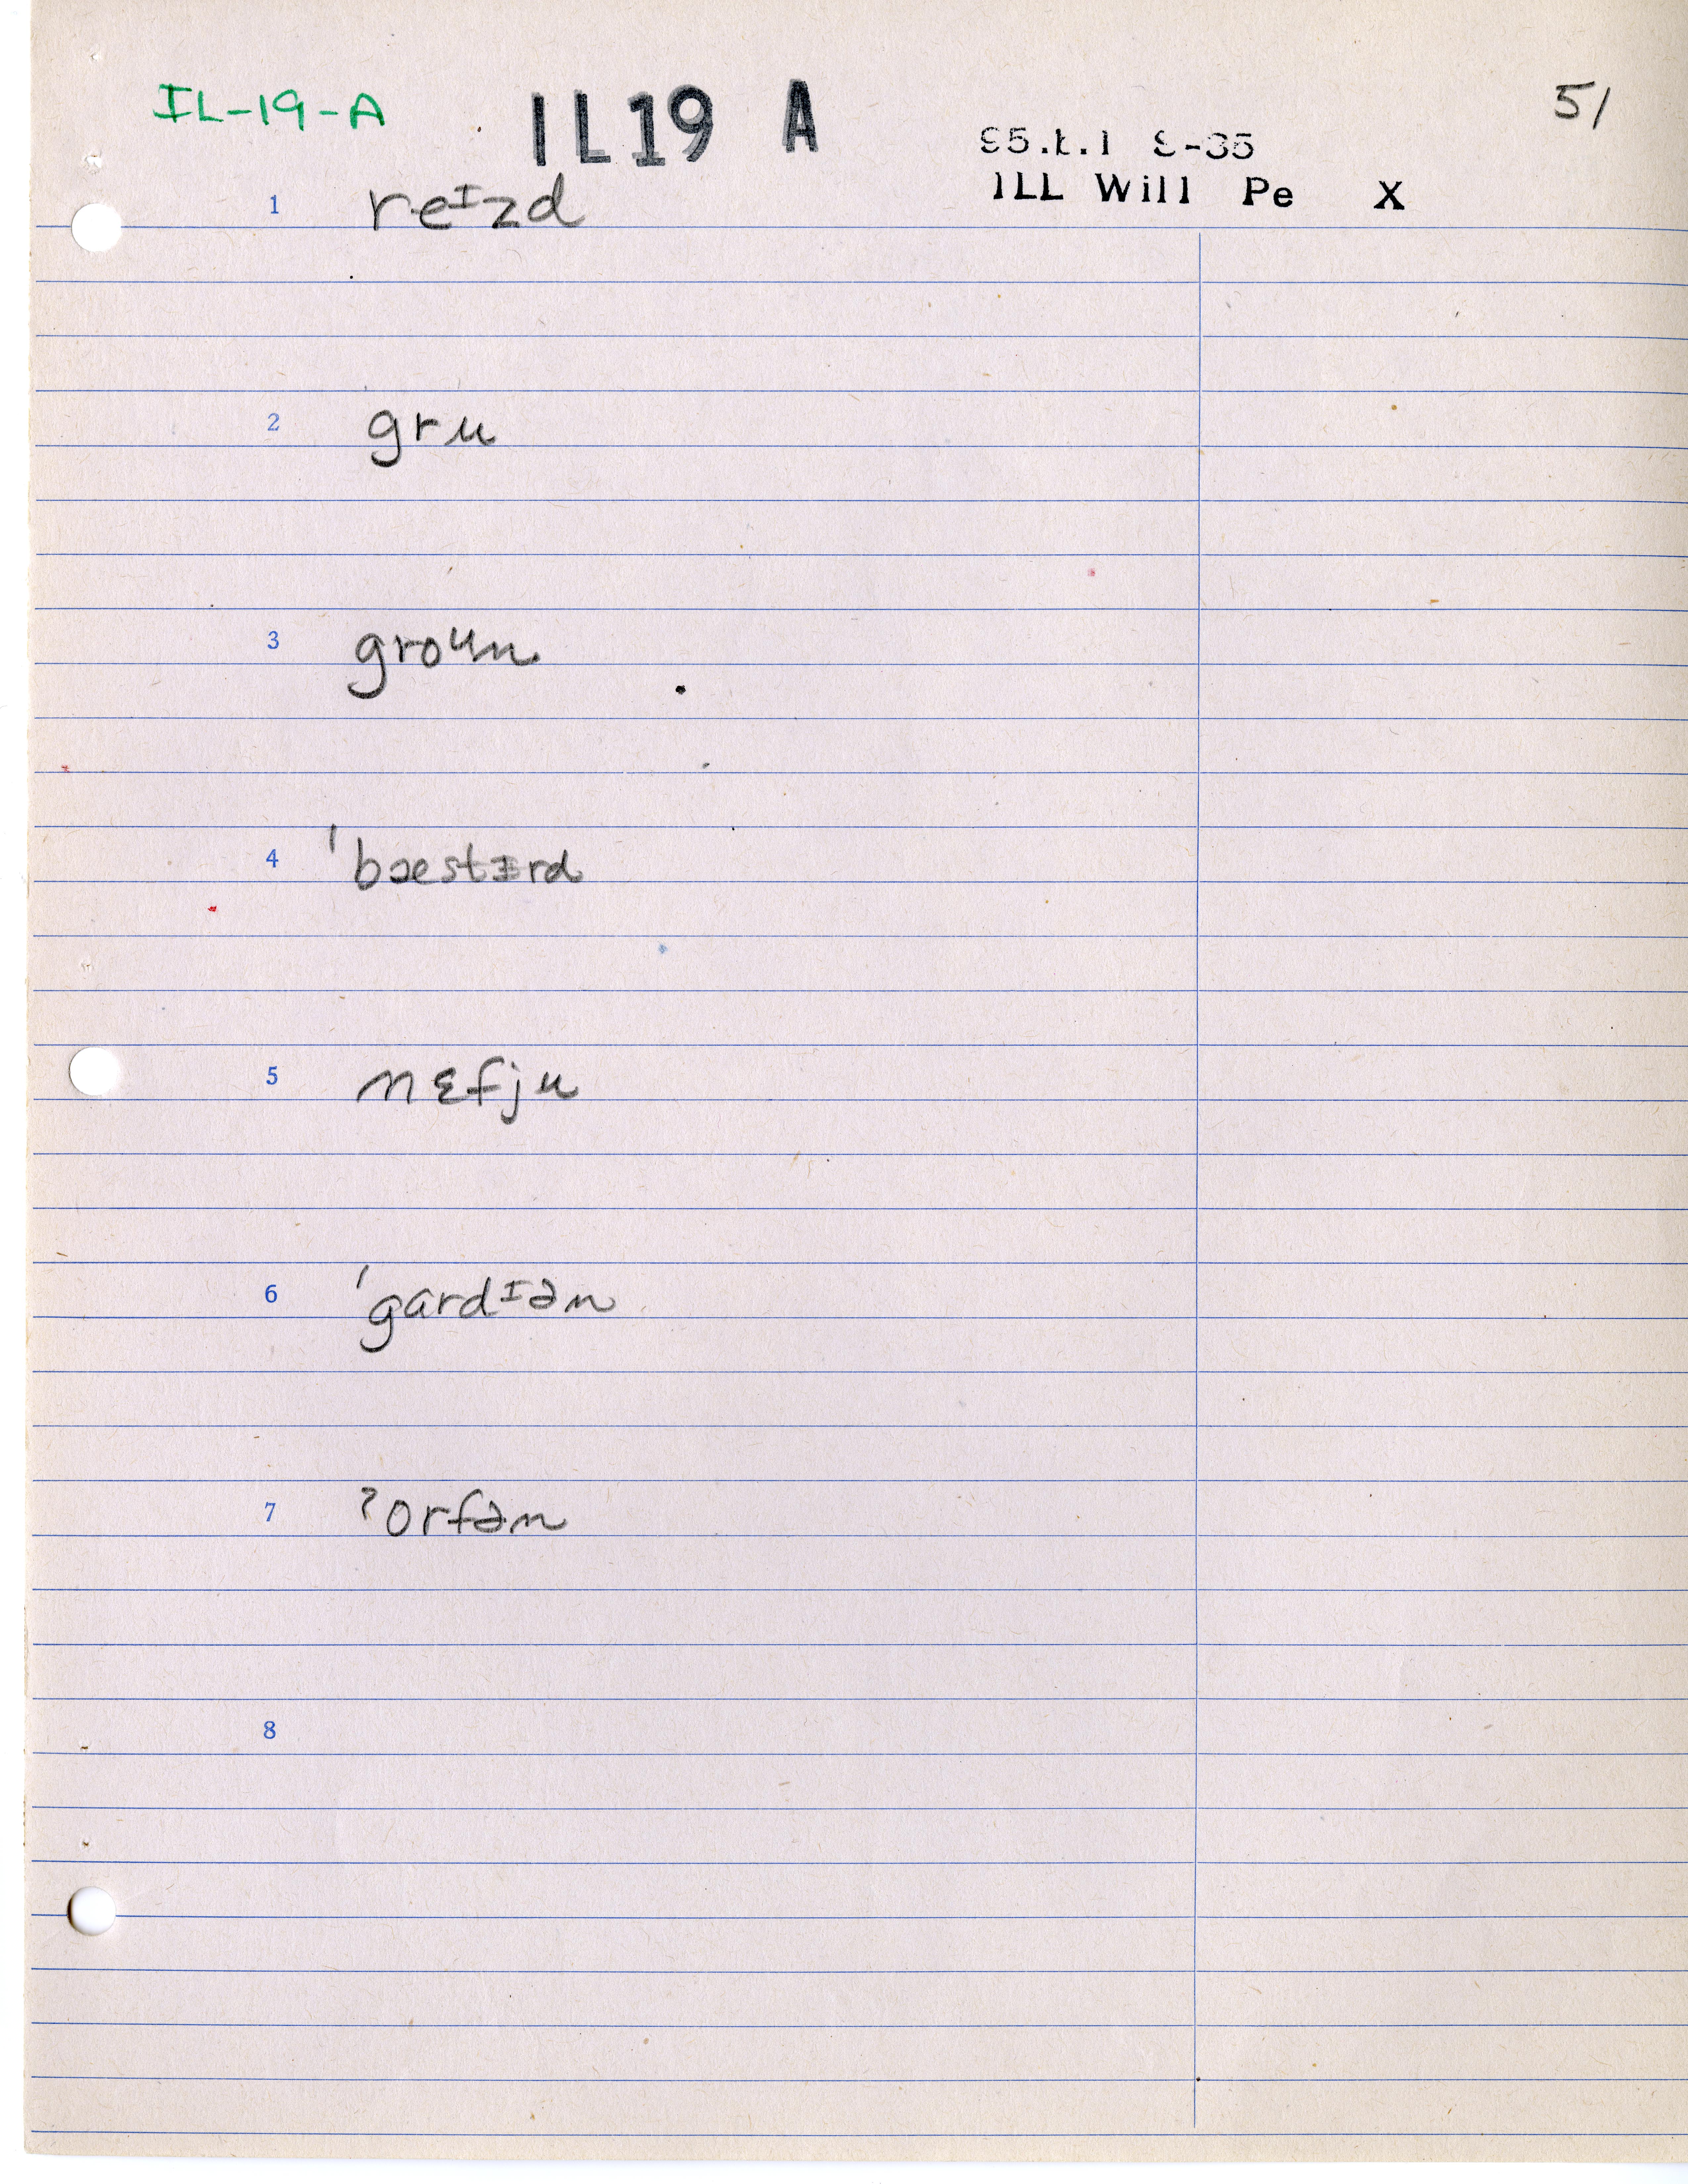 IL-19-A IL19 A 51
95.L.1 S-35
ILL Will Pe X
1 reᶦzd
2 gru
3 groᶸn
4 ˈbæstɪrd
5 nɛfju
6 ˈgardᶦən
7 ˀorfən
8